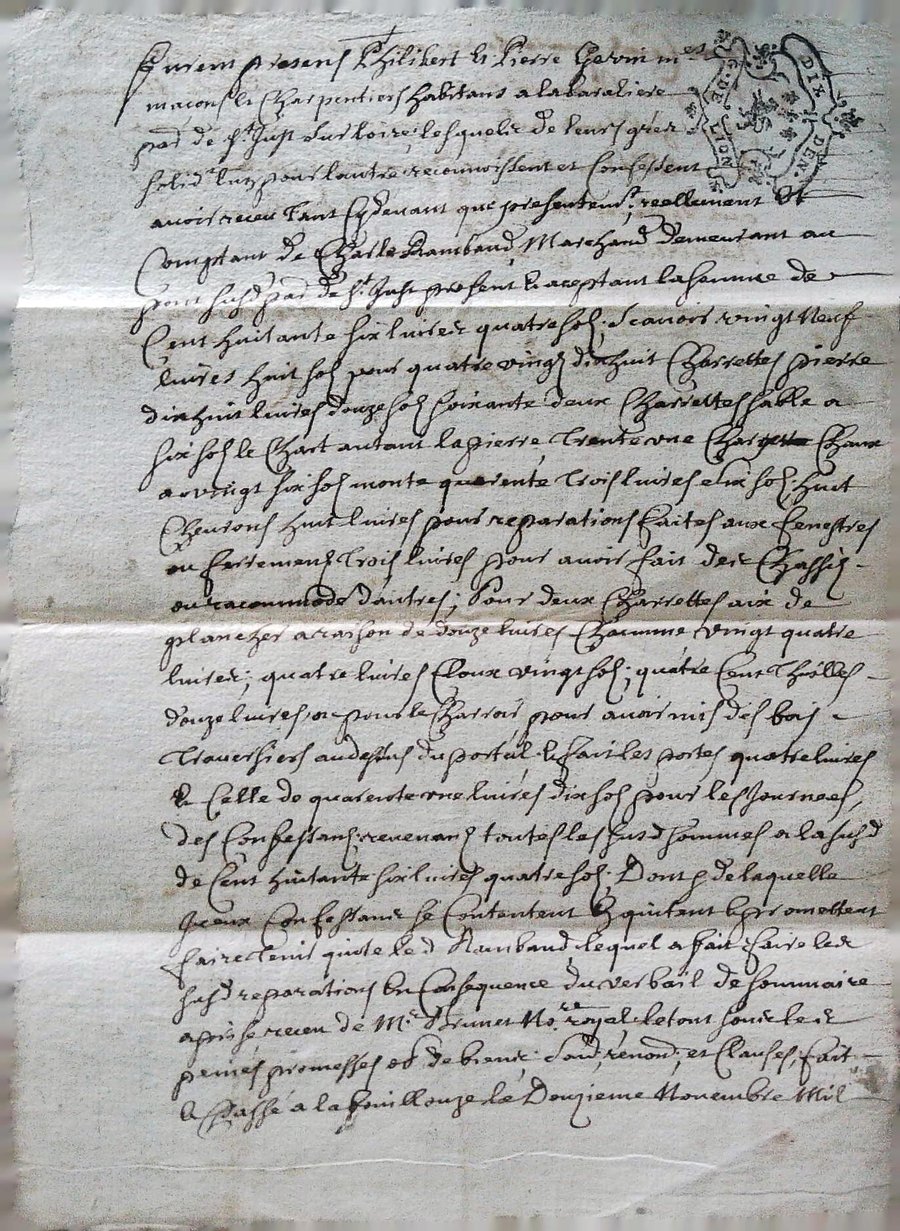 Furent presens Philibert & Pierre Thevenin m.es
macons & Charpentiers habitans a la baraliere
par de st Just sur loire; lesquels de leurs grez
solid.t lung pour lautre reconnoissent et confessent
avoir receu tant cydevant que presentem.t, reellement et
comptant de Charle Rambaud, Marchand demeurant au
pont susd par de st Just present & aceptant la somme de
Cent huitante six livres quatre sols; Scavoir vingt neuf
livres huit sols pour quatre vingts dixhuit charrettes pierre
dixhuit livres douze sols soixante deux charrettes sable a
six sols le chart autant la pierre, trente une charges chaux
a vingt six sols monte quarente trois livres e six sols; huit
chevrons huit livres pour reparations faites aux fenestres
ou ferrements trois livres pour avoir fait des chassis
ou racommode dautres; Pour deux charrettes aix de
plancher a raison de douze livres chacune vingt quatre
livres; quatre livres cloux vingt sols; quatre cens thuilles
douze livres, pour le charroir pour avoir mis des bois
traversiers audessus du portal & fait les portes quatre livres
& celle de quarente une livres dix sols pour les Journees,
des confessants, revenants toutes les susd sommes a la susd
de cent huitante six livres quatre sols; Dont & de laquelle
Iceux confessants se contentent & quittent & promettent
faire tenir quitte led Rambaud, lequel a fait faire les
susd reparations en consequence du verbail de sommaire
aprise receu de M.r Brunet No.re royal, le tout sous les
peines promesses ob de biens; soud, renond; et clauses, fait
& passé a la fouillouze le Douzieme Novembre Mil
DIX DEN.